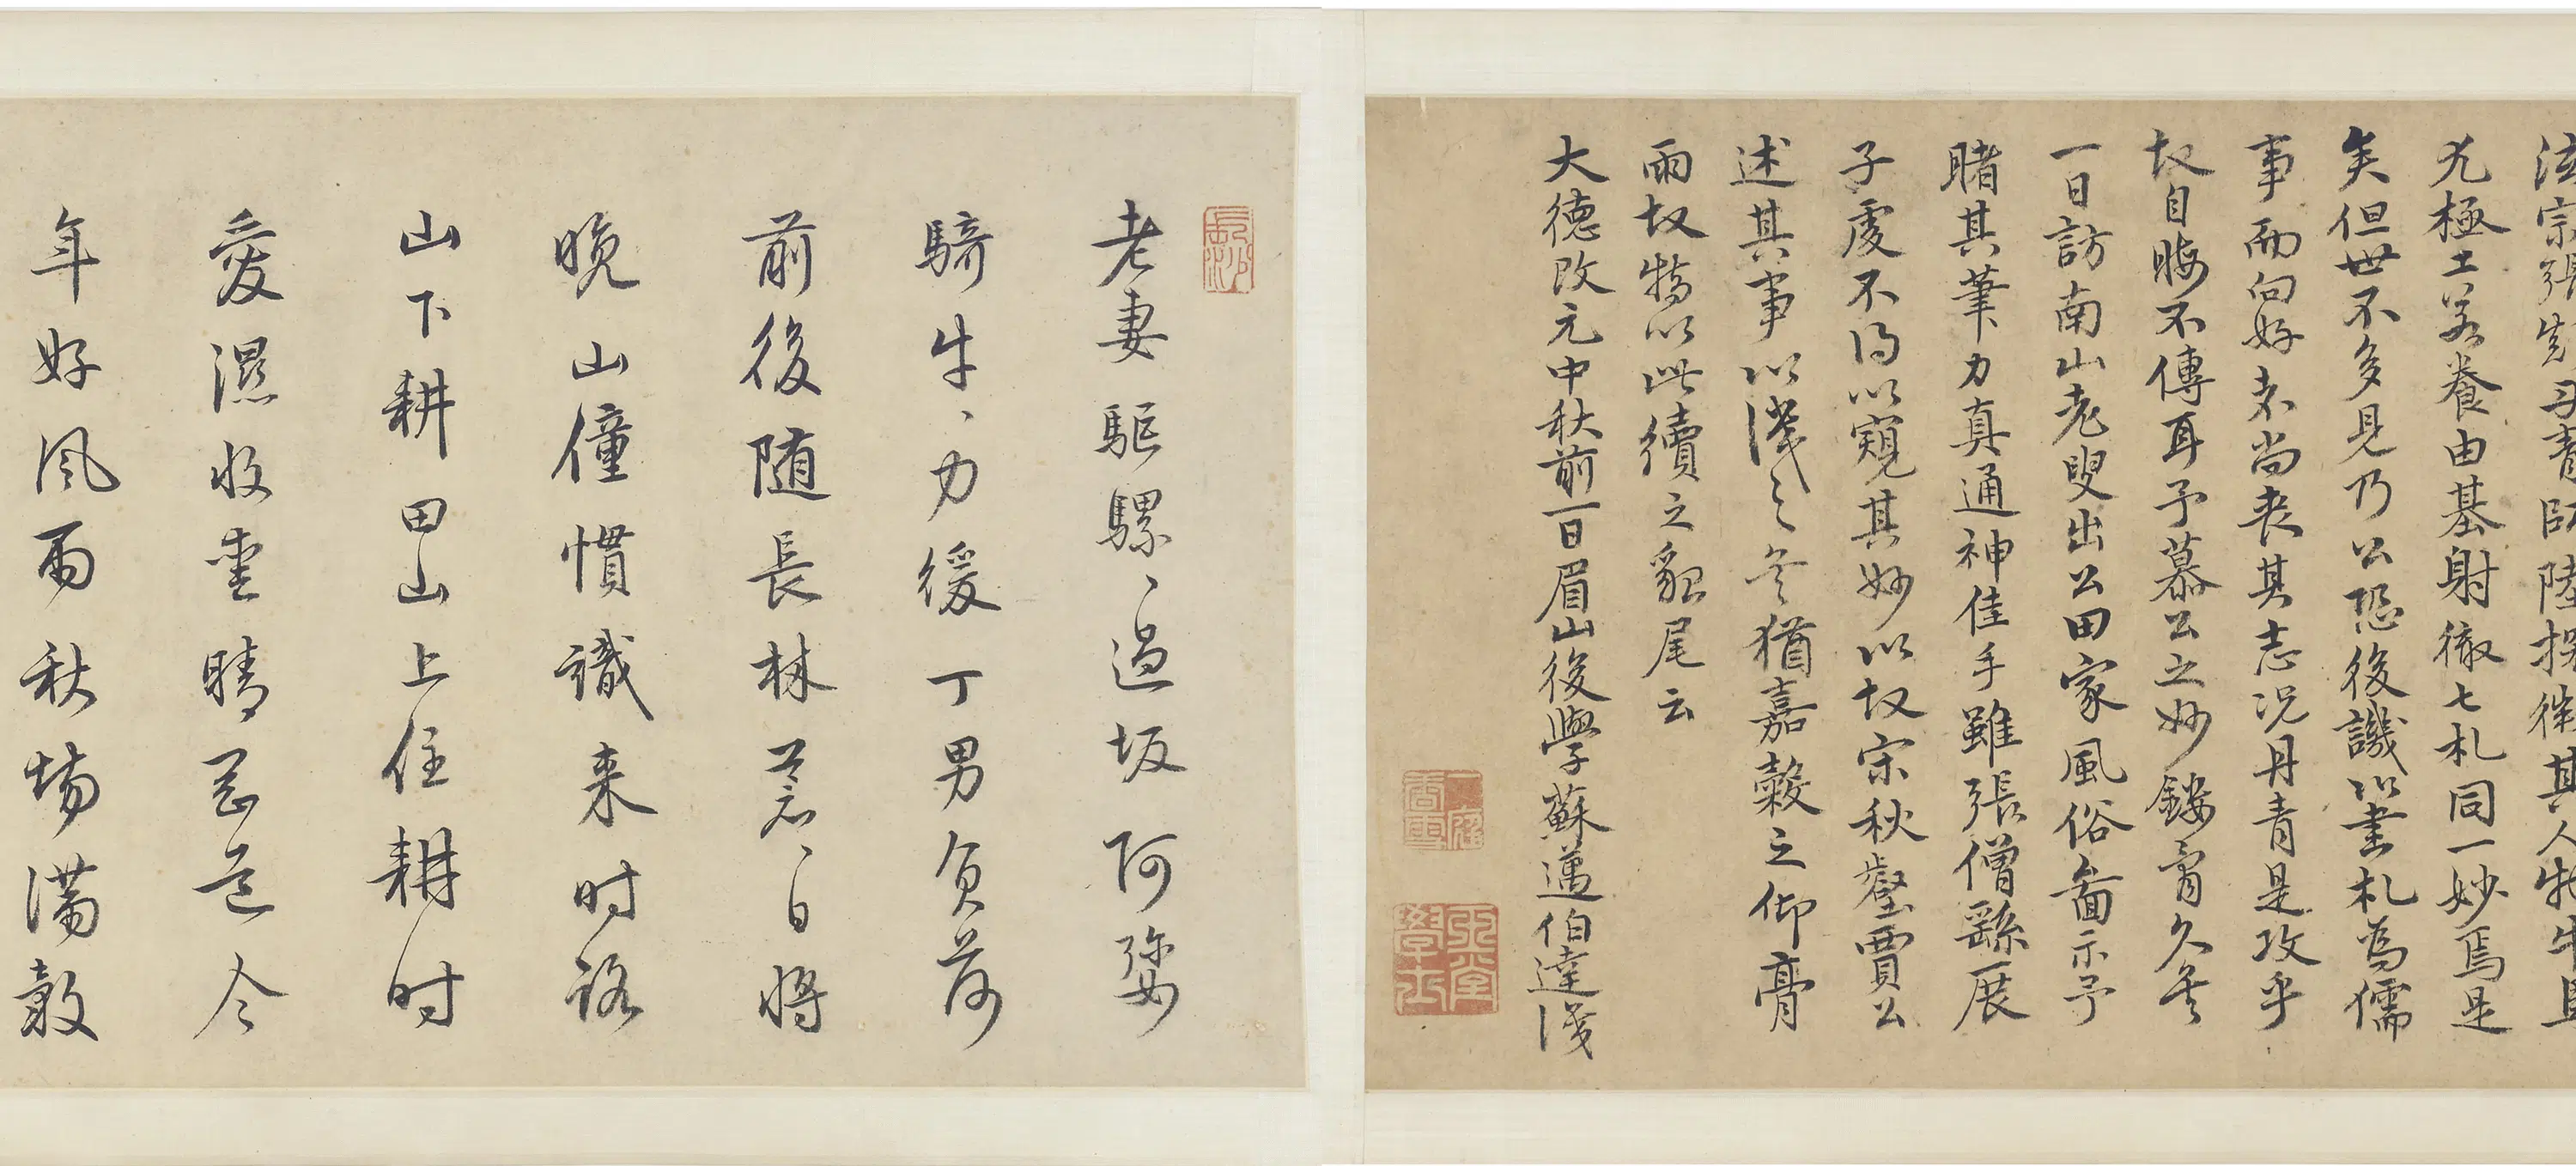 法宗張先母青師陸探微其人牧牛且
尤極工若養由基射徹七札同一妙焉是
矣但世不多見乃公恐後譏以畫札為儒
事而向好未尚丧其志況丹青是攻乎
故自晦不傳耳予慕公之妙鏤膏久矣
一日訪南山老叟出公田家風俗啚示予
睹其筆力真通神佳手雖張僧繇展
子虔不得以窺其妙以故宋秋壑賈公
述其事以識之矣猶嘉穀之仰膏
雨故特以此續之貂尾云
大德改元中秋前一日眉山後學蘇邁伯達識
老妻驅騾、過坂阿婆
騎牛、力緩丁男負荷
前後随長林荒、日將
晚山僮慣識来时路
山下耕田山上住耕时
愛濕收愛晴忌道今
年好風雨秋場满穀